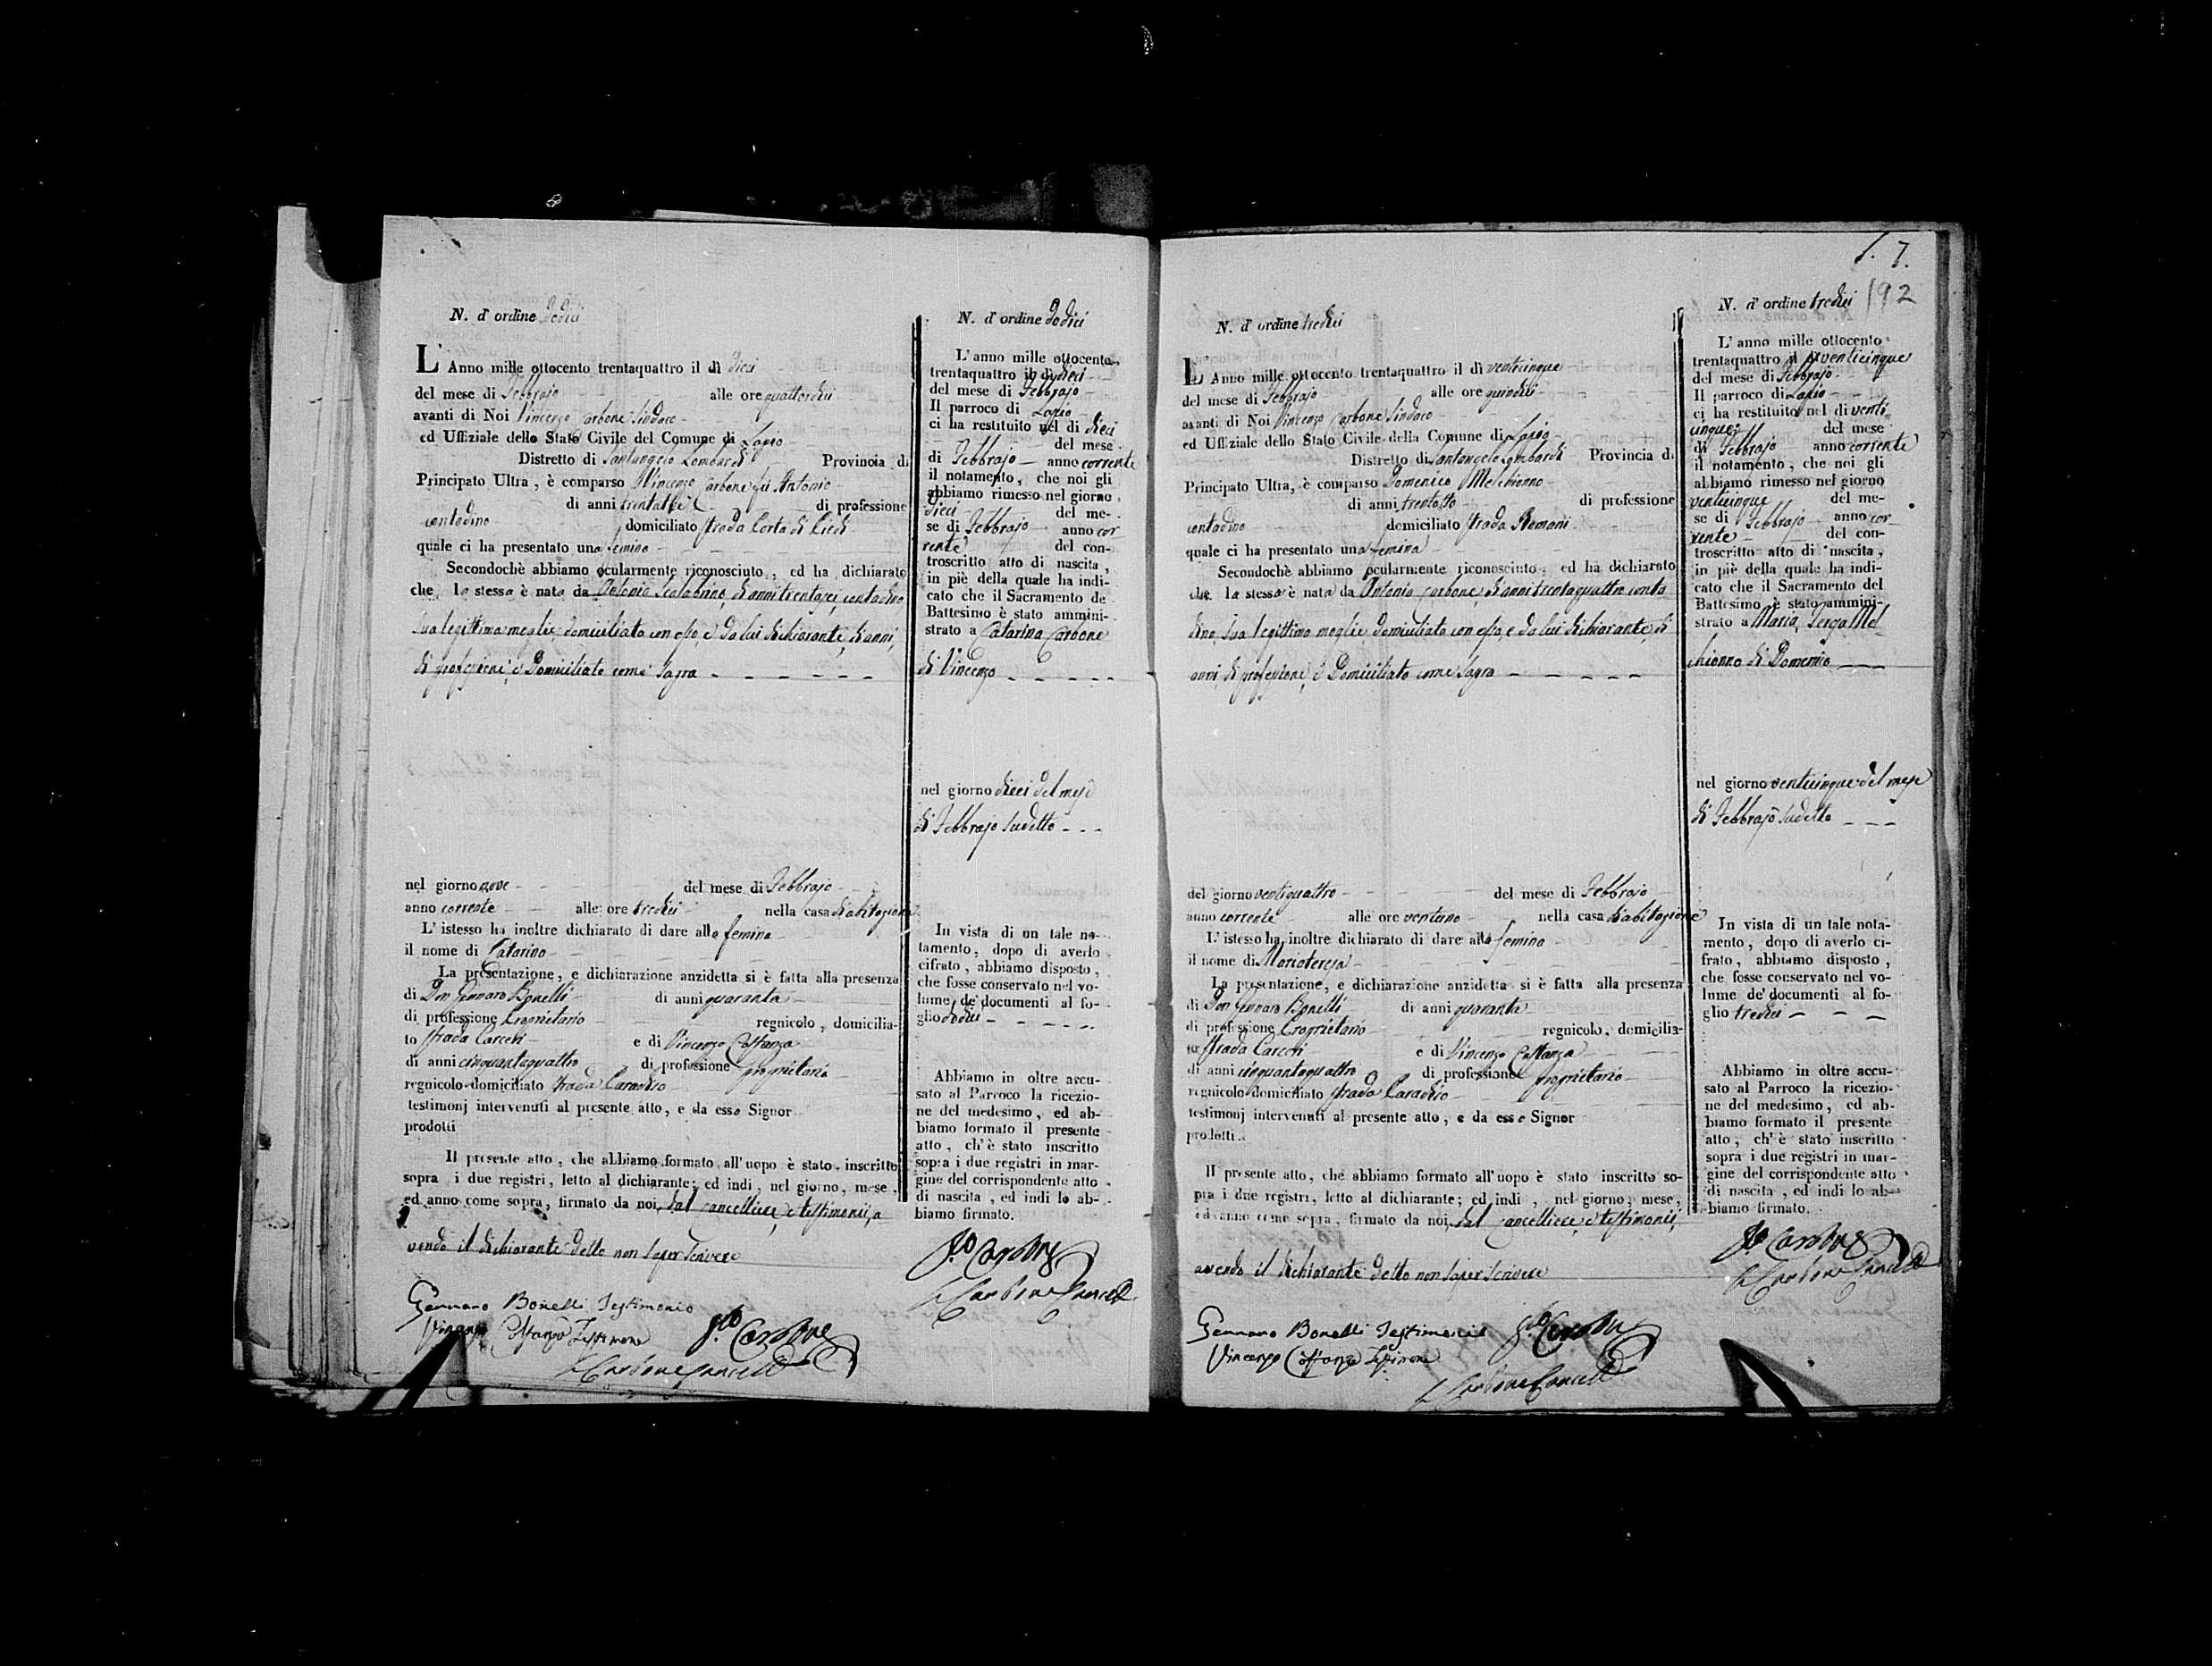 N. d'ordine Dodici
L'Anno mille ottocento trentaquattro il dì dieci
del mese di Febbrajo alle ore quattordici
avanti di Noi Vincenzo Carbone Sindaco
ed Uffiziale dello Stato Civile del Comune di Lapio
Distretto di Santangelo Lombardi Provincia di
Principato Ultra, è comparso Vincenzo Carbone fu Antonio
di anni di professione
contadino domiciliato strada Corta di Piedi
quale ci ha presentato una femina
Secondochè abbiamo ocularmente riconosciuto, ed ha dichiarato
che la stessa è nata da Antonia Scalabrino, di anni trentasei, contadina
sua legittima moglie domiciliata con esso, e da lui dichiarante, di anni,
di professione, e Domiciliato come sopra
nel giorno nove del mese di Febbrajo
anno corrente alle ore tredici nella casa di abitazione
L'istesso ha inoltre dichiarato di dare alla femina
il nome di Catarina
La presentazione, e dichiarazione anzidetta si è fatta alla presenza
di Don Gennaro Bonelli di anni quaranta
di professione Proprietario regnicolo, domicilia-
to strada Carceri e di Vincenzo Costanza
di anni cinquantaquattro di professione proprietario
regnicolo domiciliato strada Caradio
testimonj intervenuti al presente atto, e da esso Signor
prodotti
Il presente atto, che abbiamo formato all'uopo è stato inscritto
sopra i due registri, letto al dichiarante; ed indi, nel giorno, mese,
ed anno come sopra, firmato da noi, dal Cancelliere, e testimonii, a
vendo il dichiarante detto non saper scrivere
Gennaro Bonelli Testimonio
Vincenzo Costanza Testimone
Carbone
Carbone Cancell
N. d'ordine Dodici
L'anno mille ottocento
trentaquattro il dì dieci
del mese di Febbrajo
Il parroco di Lapio
ci ha restituito nel dì dieci
del mese
di Febbrajo anno corrente
il notamento, che noi gli
abbiamo rimesso nel giorno
dieci del me-
se di Febbrajo anno cor
rente del con-
troscritto atto di nascita,
in piè della quale ha indi-
cato che il Sacramento de
Battesimo è stato ammini-
strato a Catarina Carbone
di Vincenzo
nel giorno dieci del mese
di Febbrajo sudetto
In vista di un tale no-
tamento, dopo di averlo
cifrato, abbiamo disposto,
che fosse conservato nel vo-
lume de' documenti al fo-
glio dodici
Abbiamo in oltre accu-
sato al Parroco la ricezio-
ne del medesimo, ed ab-
biamo formato il presente
atto, ch'è stato inscritto
sopra i due registri in mar-
gine del corrispondente atto
di nascita, ed indi lo ab-
biamo firmato.
Carbone
Carbone Cancell
7.
192
N. d'ordine tredici
L'Anno mille ottocento trentaquattro il dì venticinque
del mese di Febbrajo alle ore quindici
avanti di Noi Vincenzo Carbone Sindaco
ed Uffiziale dello Stato Civile della Comune di Lapio
Distretto di Santangelo Lombardi Provincia di
Principato Ultra, è comparso Domenico Melchionno
di anni trentotto di professione
contadino domiciliato strada Romani
quale ci ha presentato una femina
Secondochè abbiamo ocularmente riconosciuto, ed ha dichiarato
che la stessa è nata da Antonia Carbone, di anni trentaquattro conta
dina, sua legittima moglie domiciliata con esso, e da lui dichiarante, di
anni, di professione, e Domiciliato come sopra
del giorno ventiquattro del mese di Febbrajo
anno corrente alle ore ventuno nella casa di abitazione
L'istesso ha inoltre dichiarato di dare alla femina
il nome di Mariateresa
La presentazione, e dichiarazione anzidetta si è fatta alla presenza
di Don Gennaro Bonelli di anni quaranta
di professione Proprietario regnicolo, domicilia-
to strada Carceri e di Vincenzo Costanza
di anni cinquantaquattro di professione proprietario
regnicolo domiciliato strada Caradio
testimonj intervenuti al presente atto, e da esso Signor
prodotti
Il presente atto, che abbiamo formato all'uopo è stato inscritto so-
pra i due registri, letto al dichiarante; ed indi, nel giorno, mese,
ed anno come sopra, firmato da noi, dal Cancelliere, e testimonii,
avendo il dichiarante detto non saper scrivere
Gennaro Bonelli Testimonio
Vincenzo Costanza Testimone
Carbone
Carbone Cancell
N. d'ordine tredici
L'anno mille ottocento
trentaquattro il dì venticinque
del mese di Febbrajo
Il parroco di Lapio
ci ha restituito nel dì venti
cinque del mese
di Febbrajo anno corrente
il notamento, che noi gli
abbiamo rimesso nel giorno
venticinque del me-
se di Febbrajo anno cor
rente del con-
troscritto atto di nascita,
in piè della quale ha indi-
cato che il Sacramento del
Battesimo è stato ammini-
strato a Maria Teresa Mel
chionno di Domenico
nel giorno venticinque del mese
di Febbrajo sudetto
In vista di un tale nota-
mento, dopo di averlo ci-
frato, abbiamo disposto,
che fosse conservato nel vo-
lume de' documenti al fo-
glio tredici
Abbiamo in oltre accu-
sato al Parroco la ricezio-
ne del medesimo, ed ab-
biamo formato il presente
atto, ch'è stato inscritto
sopra i due registri in mar-
gine del corrispondente atto
di nascita, ed indi lo ab-
biamo firmato.
Carbone
Carbone Cancell